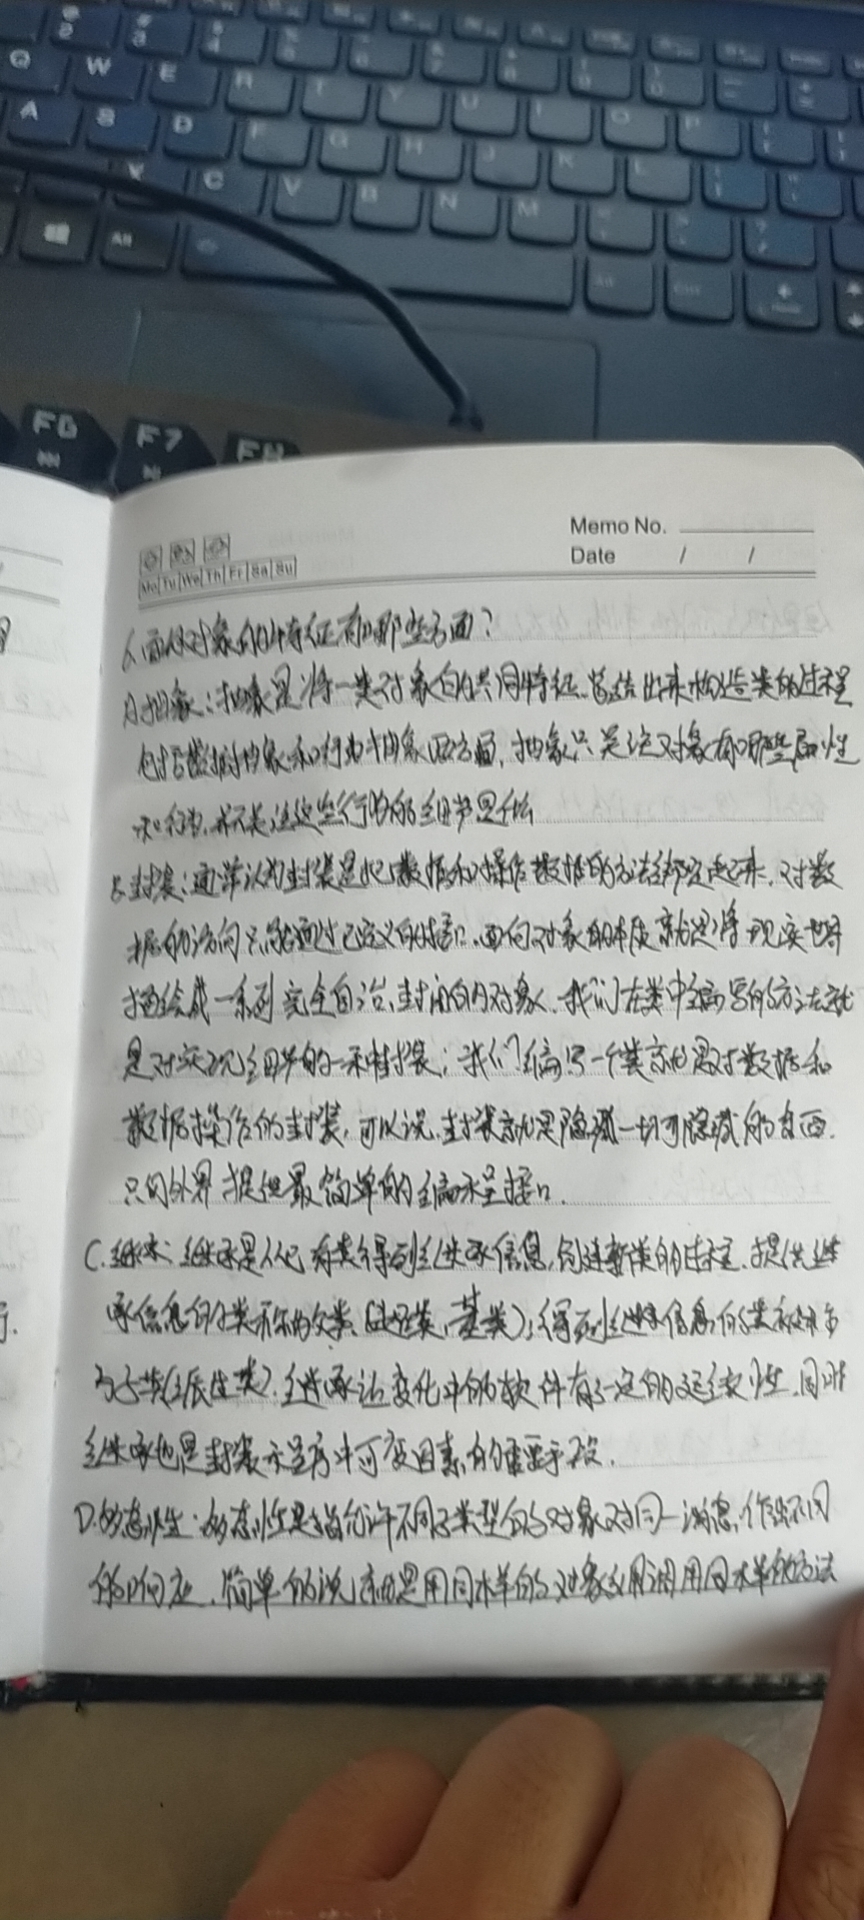 Q W E R T Y U I O P
A S D F G H J K L
X C V B N M
Alt
F6 F7 F8
Memo No.
Date / /
Mo Tu We Th Fr Sa Su
6.面向对象的特征有哪些方面?
A.抽象:抽象是将一类对象的共同特征总结出来构造类的过程
包括数据抽象和行为抽象两方面,抽象只关注对象有哪些属性
和行为,并不关注这些行为的细节是什么
B.封装:通常认为封装是把数据和操作数据的方法绑定起来,对数
据的访问只能通过已定义的接口。面向对象的本质就是将现实世界
描绘成一系列完全自治、封闭的对象。我们在类中编写的方法就
是对实现细节的一种封装;我们编写一个类就是对数据和
数据操作的封装,可以说,封装就是隐藏一切可隐藏的东西.
只向外界提供最简单的编程接口.
C.继承:继承是从已有类得到继承信息,创建新类的过程.提供继
承信息的类称为父类(超类、基类);得到继承信息的类被称
为子类(派生类).继承让变化中的软件有了一定的延续性,同时
继承也是封装程序中可变因素的重要手段.
D.多态性:多态性是指允许不同子类型的对象对同一消息,作出不同
的响应.简单的说就是用同样的对象引用调用同样的方法